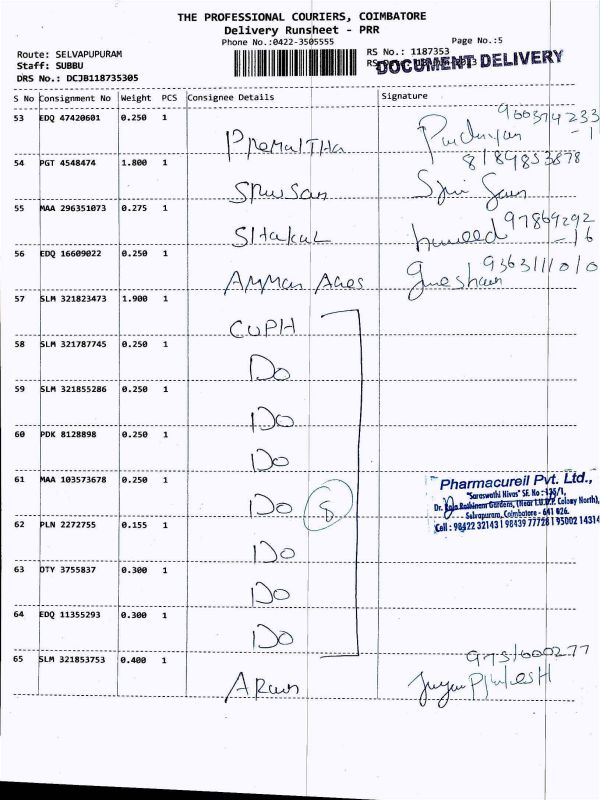 THE PROFESSIONAL COURIERS, COIMBATORE
Delivery Runsheet - PRR
Phone No.:0422-3505555
Page No.:5
Route: SELVAPUPURAM
RS No.: 1187353
Staff: SUBBU
DOCUMENT DELIVERY
DRS No.: DCJB118735305
S No Consignment No Weight PCS Consignee Details Signature
53 EDQ 47420601 0.250 1
PREMALTHA
54 PGT 4548474 1.800 1
8189853878
55 MAA 296351073 0.275 1
56 EDQ 16609022 0.250 1
9363111010
57 SLM 321823473 1.900 1
CUPH
58 SLM 321787745 0.250 1
Do
59 SLM 321855286 0.250 1
Do
60 PDK 8128898 0.250 1
Do
61 MAA 103573678 0.250 1
Do 8
Pharmacureil Pvt. Ltd.,
"Saraswathi Nivas" SF. No : 
Gardens, (Near Colony North),
Selvapuram, Coimbatore - 641 026.
Cell : 98422 32143 | 98439 77728 | 95002 14314
62 PLN 2272755 0.155 1
Do
63 DTY 3755837 0.300 1
Do
64 EDQ 11355293 0.300 1
Do
65 SLM 321853753 0.400 1
ARUN